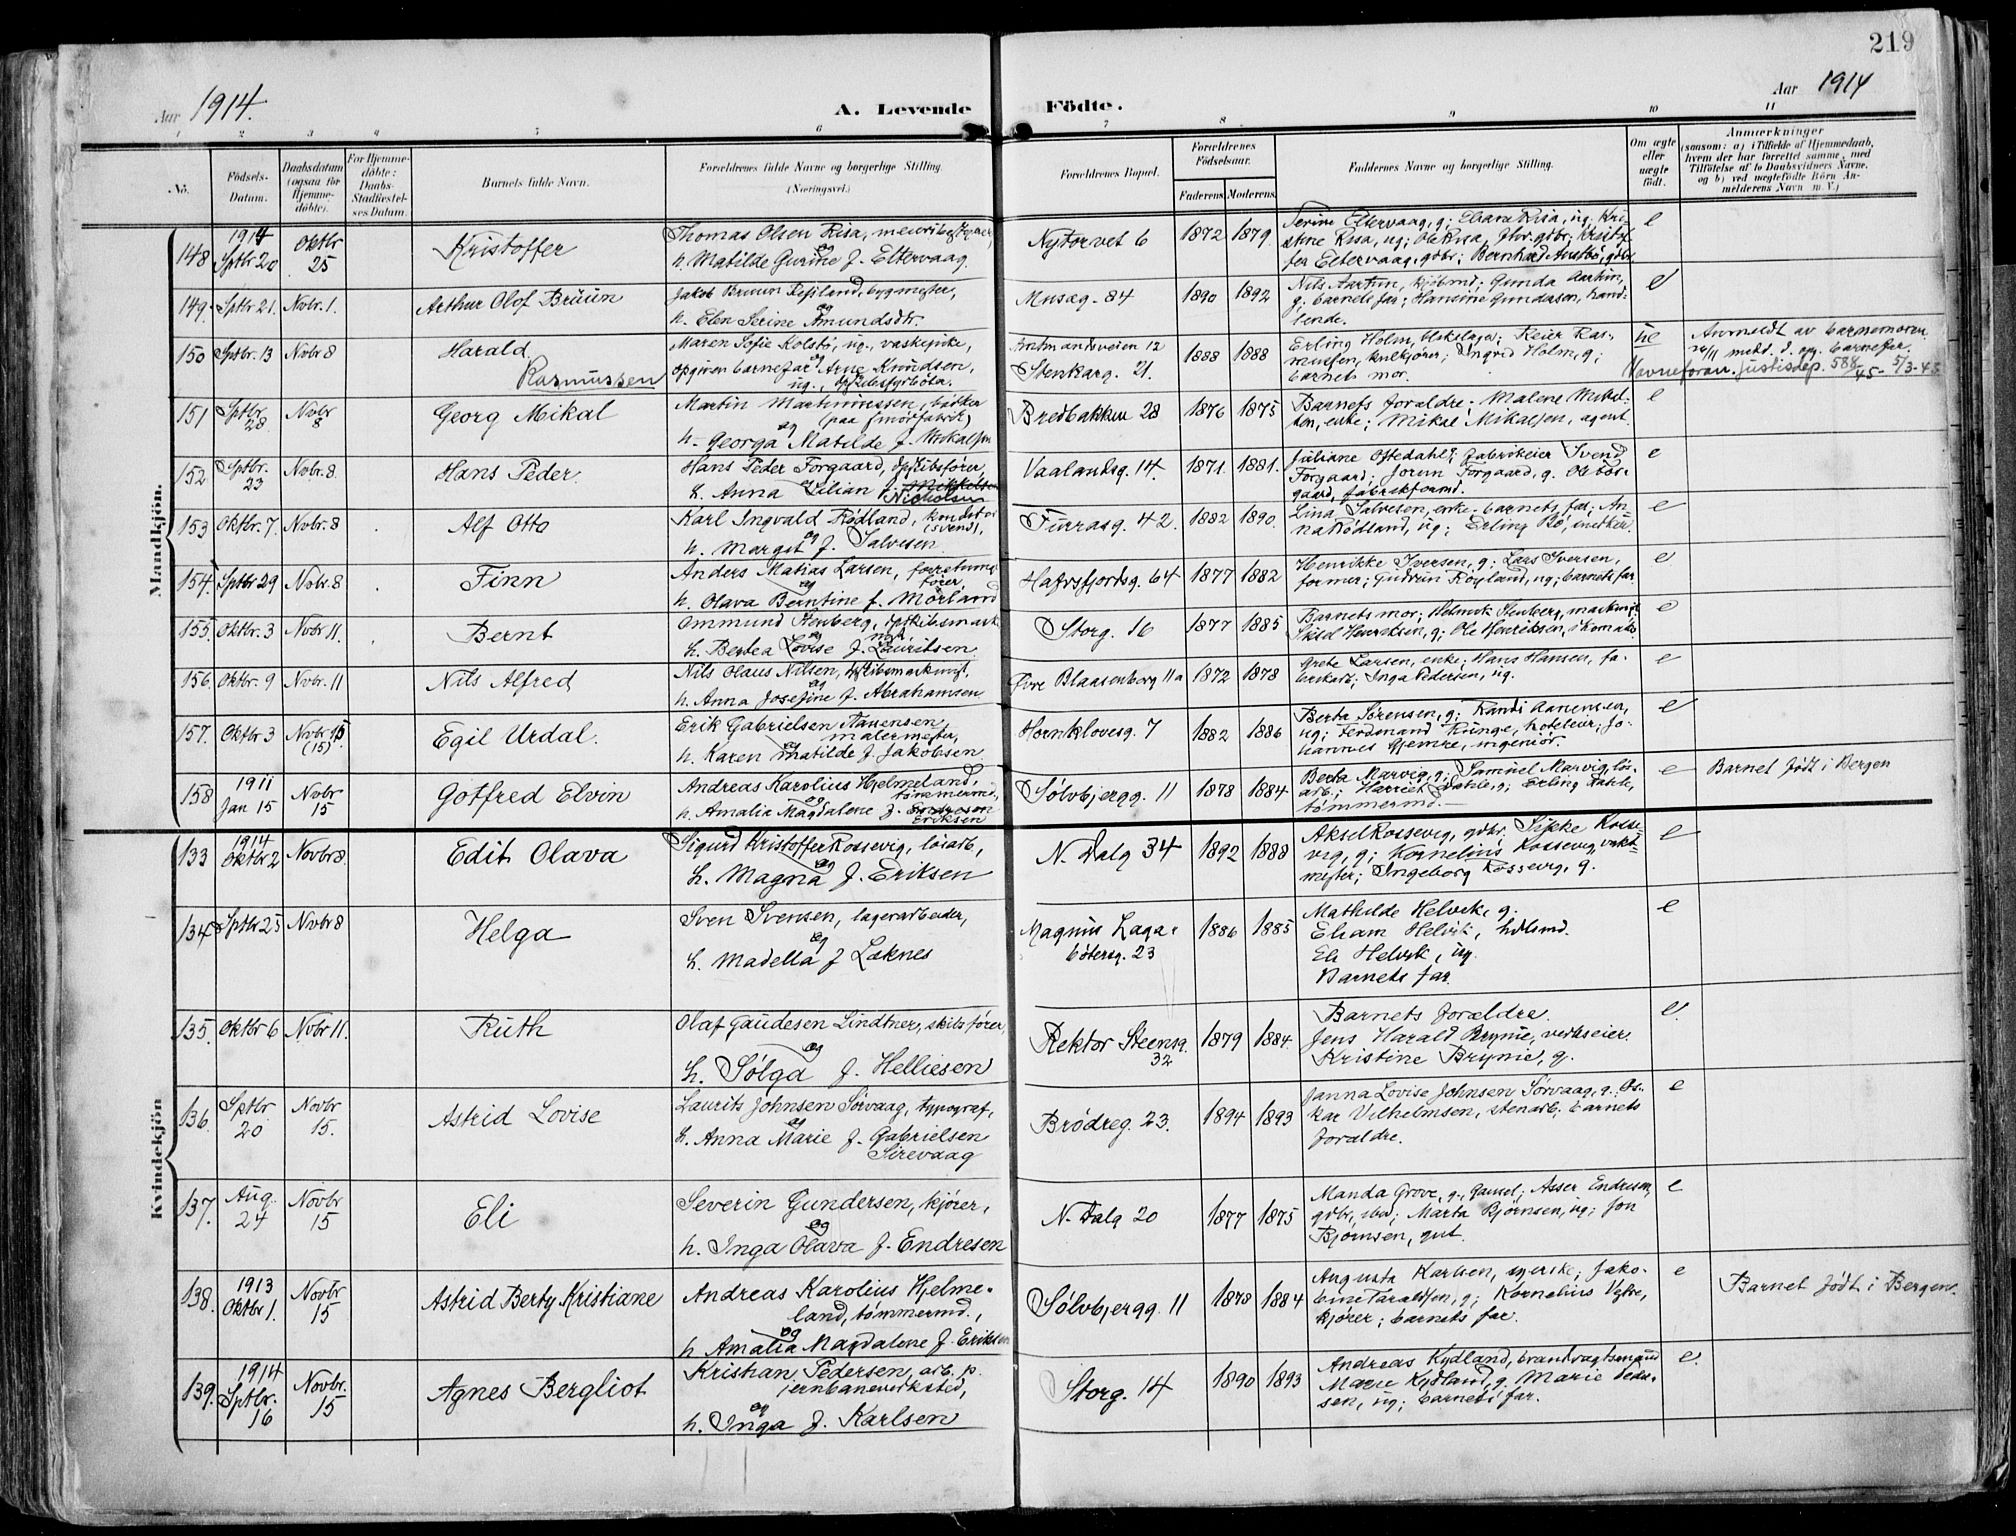 219
Aar 1914.
A. Levende
Födte.
Aar 1914
1 2 3 4 5 6 7 8 9 10 11
No.
Födsels-Datum.
Daabsdatum (ogsaa for Hjemme-döbte).
For Hjemme-döbte: Daabs-Stadfæstelses Datum.
Barnets fulde Navn.
Forældrenes fulde Navne og borgerlige Stilling. (Næringsvei.)
Forældrenes Bopæl.
Forældrenes Födselsaar.
Faderens. Moderens.
Faddernes Navne og borgerlige Stilling.
Om ægte eller uægte födt.
Anmærkninger
(saasom: a) i Tilfælde af Hjemmedaab, hvem der har forrettet samme, med Tilföielse af to Daabsvidners Navne, og b) ved uægtefödte Börn Anmelderens Navn m. V.)
Mandkjön.
148 1914 Sptbr 20 Oktbr 25 Kristoffer Thomas Olsen Risa,
og
h. Matilde Gurine f. Eltervaag Nytorvet 6 1872 1879 Serine Eltervaag, g; Risa, ug; Kristine Risa, ug; Ole Risa, gdbr; Kristoffer Eltervaag, gdbr; Bernhard Austbø, gdbr e
149. Sptbr 21. Novbr. 1. Arthur Olof Brüün Jakob Bruun bygmester,
og
h. Elen Serine Amundsdtr. Musæg. 84 1890 1892 Nils Aartun, kjøbmd; Gunda Aartun, g. barnets far; Hansine Gundersen, handlende. e
150 Sptbr. 13 Novbr 8 Harald Rasmussen Maren Sofie Kolstø, ug., vaskepike,
opgiven barnefar Arne Knudsen,
ug., dpskibsfyrbøter. 12
Stenkarg. 21. 1888 1888 Erling Holm, Reier Rasmussen, kulkjører; Ingrid Holm, g; barnets mor. ue Anmeldt av barnemoren
Navneforan. Justisdep. 588/45 - 5/3-45
151 Sptbr. 28 Novbr 8 Georg Mikal Martin Martinussen, bøtker
(paa smørfabrik)
og
h. Georga Matilde f. Mikalsen Bredbakken 28 1876 1875 Barnets forældre; Malene enke; Mikal Mikalsen, agent. e
152 Sptbr. 23 Novbr. 8. Hans Peder Hans Peder Forgaard, dpskibsfører,
h. Anna Lilian f. Mikkelsen Nicholsen Vaalandsg. 14. 1871. 1881. Juliane Oftedahl; fabrikeier Svend Forgaard; Jorun Forgaard, g. Ole fabrikformd. e
153 Oktbr. 7. Novbr. 8 Alf Otto Karl Ingvald Rødland, konditor
(svend),
og
h. Margit f. Salvesen. Furrasg. 42. 1882 1890. Lina Salvesen, enke, barnets far; Anna Rødland, ug; Erling Bø, snedker. e
154. Sptbr 29 Novbr. 8 Finn Anders Matias Larsen, forretnings
fører,
og
h. Olava Berntine f. Mørland Hafrsfjordsg. 64 1877 1882 Henrikke Iversen, g; Lars Iversen, former; Gudrun ug; barnets far e
155. Oktbr. 3 Novbr 11. Bernt Ommund Stenberg,
og
h. Bertea Lovise f. Lauritsen. Storg. 16 1877 1885 Barnets mor; Henrik Stenberg, maskinist; Sisel Henriksen, g; Ole Henriksen, e
156. Oktbr. 9 Novbr. 11 Nils Alfred Nils Olaus Nilsen, dpskibsmaskinist,
og
h. Anna Josefine f. Abrahamsen Øvre Blaasenborg 11a 1872 1878 Grete Larsen, enke; Hans Hansen, Inga Pedersen, ug. e
157. Oktbr 3 Novbr 15 (15) Egil Urdal. Erik Gabrielsen
malermester,
og
h. Karen Matilde f. Jakobsen Hornklovesg. 7 1882 1886 Berta Sørensen, g; Randi Aanensen, ug; Ferdinand Runge, hoteleier; Johannes Gjemre, ingeniør. e
158 1911 Jan 15 Novbr 15 Gotfred Elvin Andreas Karolius Hjelmeland,
tømmermd,
og
h. Amalia Magdalene f. Endresen Eriksen Sølvbjergg. 11 1878 1884 Berta Marvig, g; Samuel Marvig, Harriet Dahle, g; Erling tømmermd. e Barnet født i Bergen
Kvindekjön
133 1914 Oktbr 2 Novbr 8 Edit Olava Sigurd Kristoffer Rossevig, løsarb,
og
h. Magna f. Eriksen N. Dalg 34 1892 1888 Aksel Rossevig, gdbr; Rossevig, g; Kornelius Rossevig, vaktmester; Ingeborg Rossevig, g. e
134 Sptbr 25 Novbr 8 Helga Sven Svensen, lagerarbeider,
og
h. Madella f Løknes Magnus Lagabøtersg. 23 1886 1885 Mathilde Helvik, g.
Helvik,
Eli Helvik, ug.
Barnets far. e
135. Oktbr 6 Novbr 11. Ruth Olaf Gaudesen Lindtner, skibsfører,
og
h. Sølga f. Helliesen Rektor Steensg. 32 1879 1884. Barnets forældre.
Jens Harald Brynie, verkseier.
Kristine Brynie, g. e.
136. Sptbr. 20 Novbr 15. Astrid Lovise Laurits Johnsen Sørvaag, typograf,
og
h. Anna Marie f. Gabrielsen
Sirevaag Brødreg. 23. 1894 1893 Janna Lovise Johnsen Sørvaag, g; Oskar Vilhelmsen, stenarb. barnets forældre. e
137. Aug. 24 Novbr 15 Eli Severin Gundersen, kjører,
og
h. Inga Olava f. Endresen N. Dalg 20 1877 1875 Manda Grove, g., Gausel; Asser Endresen, gdbr, Marta Bjørnsen, ug; Jon Bjørnsen, gut. e
138. 1913 Oktbr 1. Novbr 15 Astrid Berty Kristiane Andreas Karolius Hjelmeland, tømmermd.,
og
h Amalia Magdalene f. Eriksen Sølvbjergg. 11 1878 1884 Augusta Karlsen, Jakobine Taraldsen, g; Kornelius kjører; barnets far. e Barnet født i Bergen.
139. 1914 Sptbr. 16 Novbr. 15 Agnes Bergliot Kristian Pedersen, arb. p.
jernbaneverksted,
og
h. Inga f. Karlsen Storg. 14 1890 1893 Andreas Kydland, brandvagtsmand Marie Kydland, g. Marie Pedersen, ug; barnets far. e.